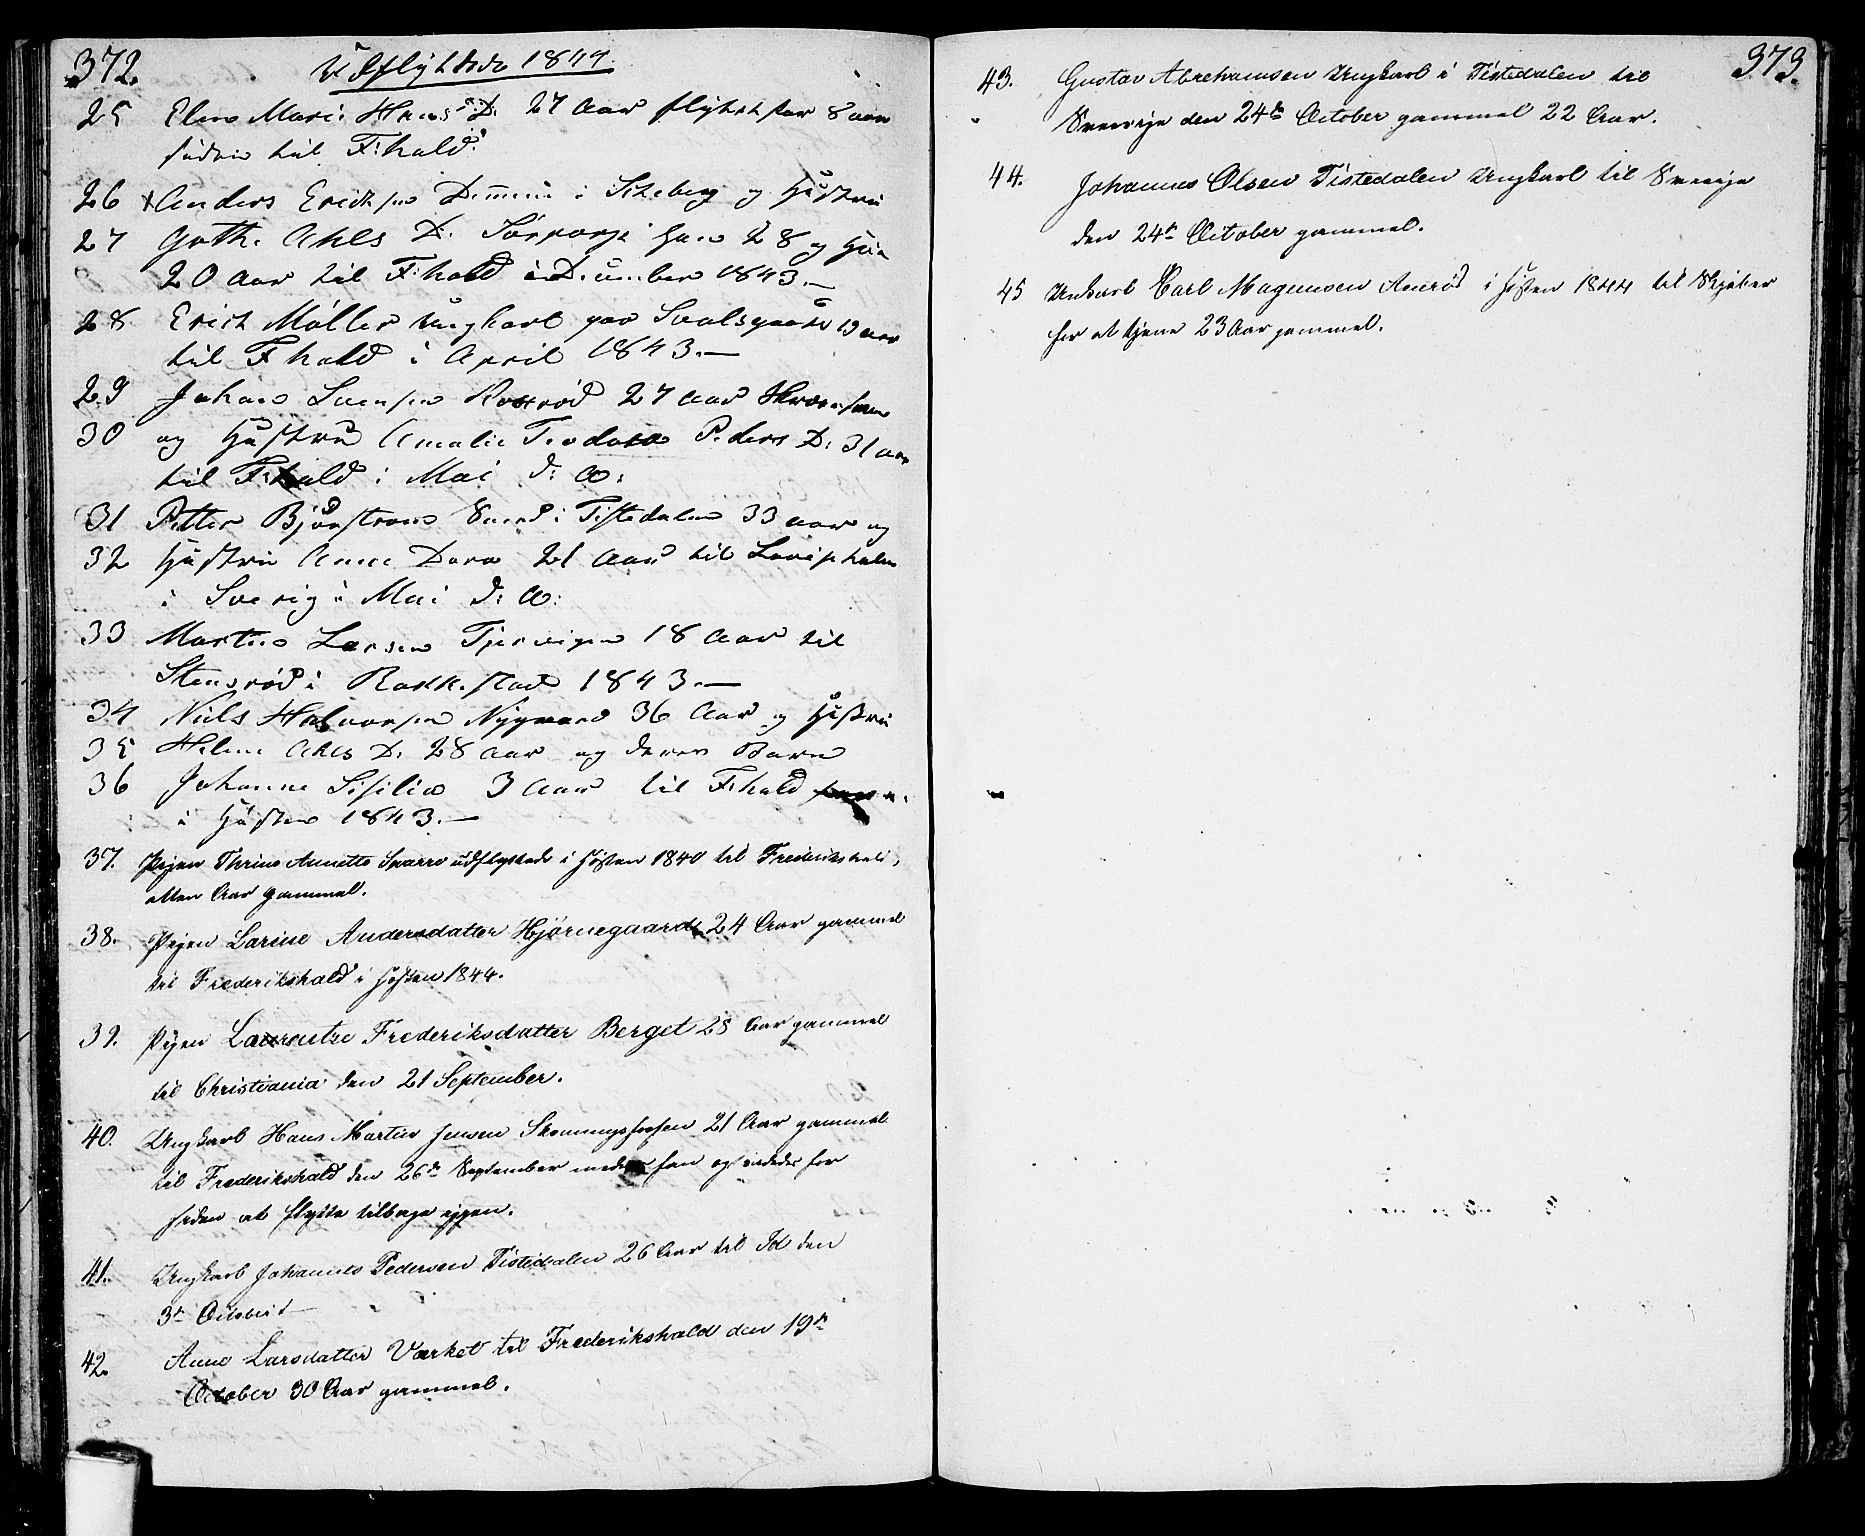 372.
Udflyttede 1844.
25 Elen Marie Hans D. 27 Aar flyttet for 8 aar
siden til F:hald.
26 Anders Erichsen i og Hustru
27 Goth. Ahls D. han 28 og Hun
20 Aar til F:hald i December 1843.—
28 Erich Møller ungkarl paa 19 aar
til F:hald i April 1843.—
29 Johan Svensen Rørød 27 aar
30 og Hustru Amalie Teodora Peders D: 31 aar
til F:hald i Mai d: A:
31 Petter Bjørstrøm Smed i Tistedalen 33 aar og
32 Hustru Anne Dora 21 Aar til
i Sverig i Mai d: A:
33 Martin Larsen Tjervigen 18 Aar til
Stensrød i Rakkestad 1843.—
34 Niels Halvorsen Nygaard 36 Aar og Hustru
35 Helene Ahls D. 28 Aar og deres Barn
36 Johanne Sisilia 3 Aar til F:hald
i Høsten 1843.—
37. Pigen Thrine Annette Sparre udflyttede i Høsten 1840 til Frederikshald,
atten Aar gammel.
38. Pigen Larine Andersdatter Hjørnegaard 24 Aar gammel
til Frederikshald i Høsten 1844.
39. Pigen Laurentze Frederiksdatter Berget 28 Aar gammel
til Christiania den 21 September.
40. Ungkarl Hans Martin Jensen Skonningsfossen 21 Aar gammel
til Frederikshald den 26de September men han for
siden at flytte tilbage igjen.
41. Ungkarl Johannes Pedersen Tistedalen 26 Aar til Id den
3de October
42. Anne Larsdatter Værket til Frederikshald den 19de
October 30 Aar gammel.
373.
43. Gustav Abrahamsen Ungkarl i Tistedalen til
Sverrige den 24de October gammel 22 Aar.
44. Johannes Olsen Tistedalen Ungkarl til Sverrige
den 24de October gammel.
45 Unkarl Carl Magnusen i Høsten 1844 til
for at tjene 23 Aar gammel.